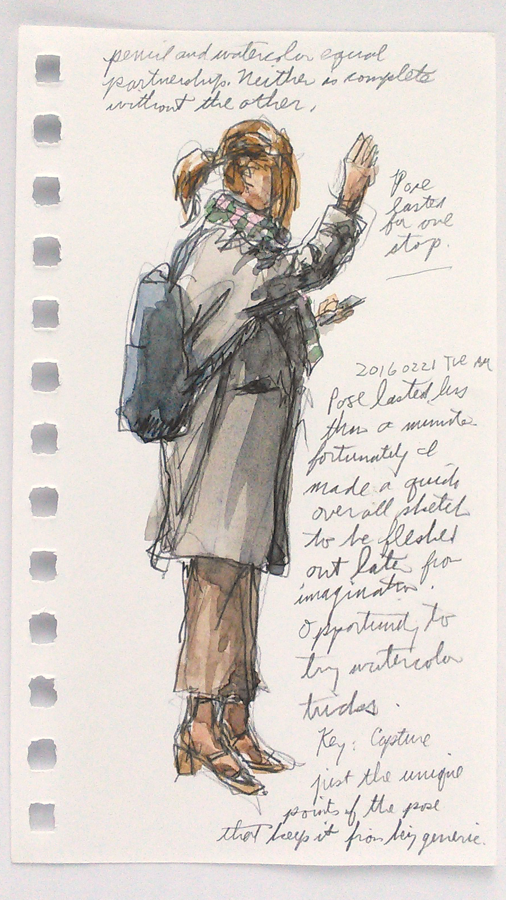 pencil and watercolor equal
partnership. Neither is complete
without the other.
Pose
lasted
for one
stop.
20160221 TUE AM
Pose lasted less
than a minute
fortunately I
made a quick
overall sketch
to be fleshed
out later from
imagination.
Opportunity to
try watercolor
tricks.
Key: Capture
just the unique
points of the pose
that keeps it from being generic.